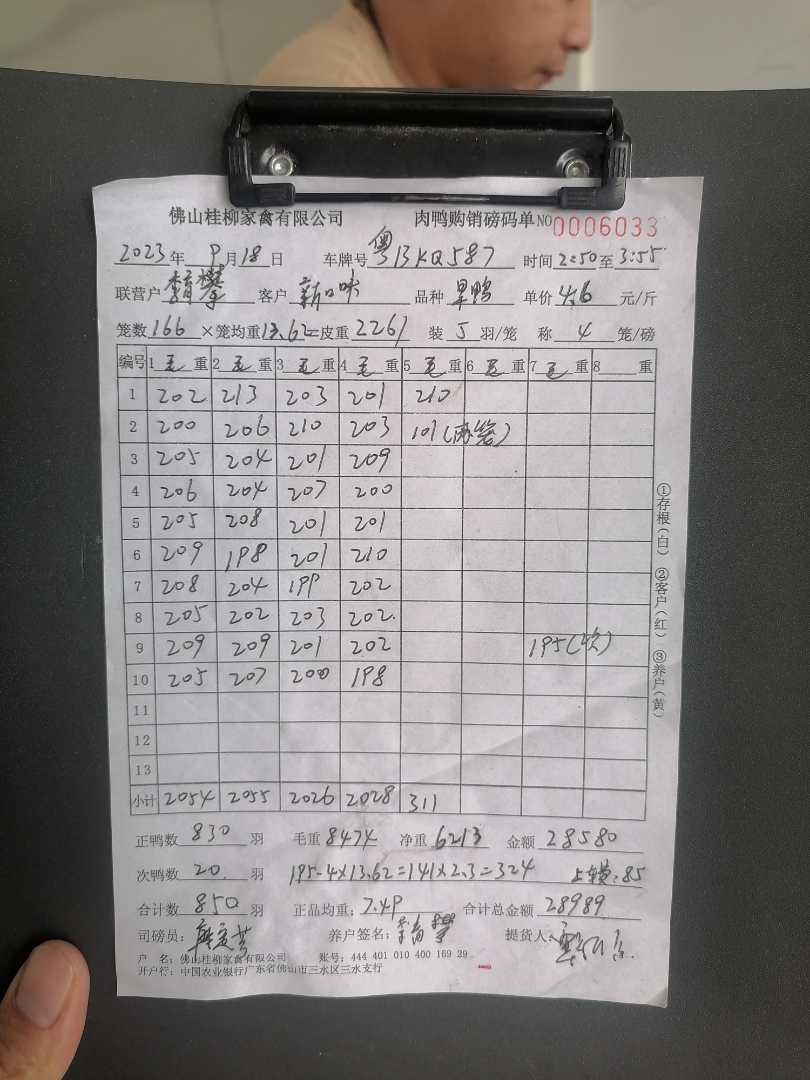 佛山桂柳家禽有限公司 肉鸭购销磅码单 NO 0006033
2023年 9月18日 车牌号 粤BKQ587 时间 2:50至3:55
联营户 李育攀 客户 新口味 品种 旱鸭 单价 4.6 元/斤
笼数 166 ×笼均重 13.62 =皮重 2261 装 5 羽/笼 称 4 笼/磅
编号 1 毛 重 2 毛 重 3 毛 重 4 毛 重 5 毛 重 6 毛 重 7 毛 重 8 重
1 202 213 203 201 210
2 200 206 210 203 101(两笼)
3 205 204 201 209
4 206 204 207 200
5 205 208 201 201
6 209 198 201 210
7 208 204 199 202
8 205 202 203 202.
9 209 209 201 202 195(次)
10 205 207 200 198
11
12
13
小计 2054 2055 2026 2028 311
正鸭数 830 羽 毛重 8474 净重 6213 金额 28580
次鸭数 20. 羽 195-4×13.62=141×2.3=324 上车费:85
合计数 850 羽 正品均重: 7.49 合计总金额 28989
司磅员: 养户签名: 李育攀 提货人:
户 名: 佛山桂柳家禽有限公司 账号: 444 401 010 400 169 29
开户行: 中国农业银行广东省佛山市三水区三水支行
①存根(白) ②客户(红) ③养户(黄)